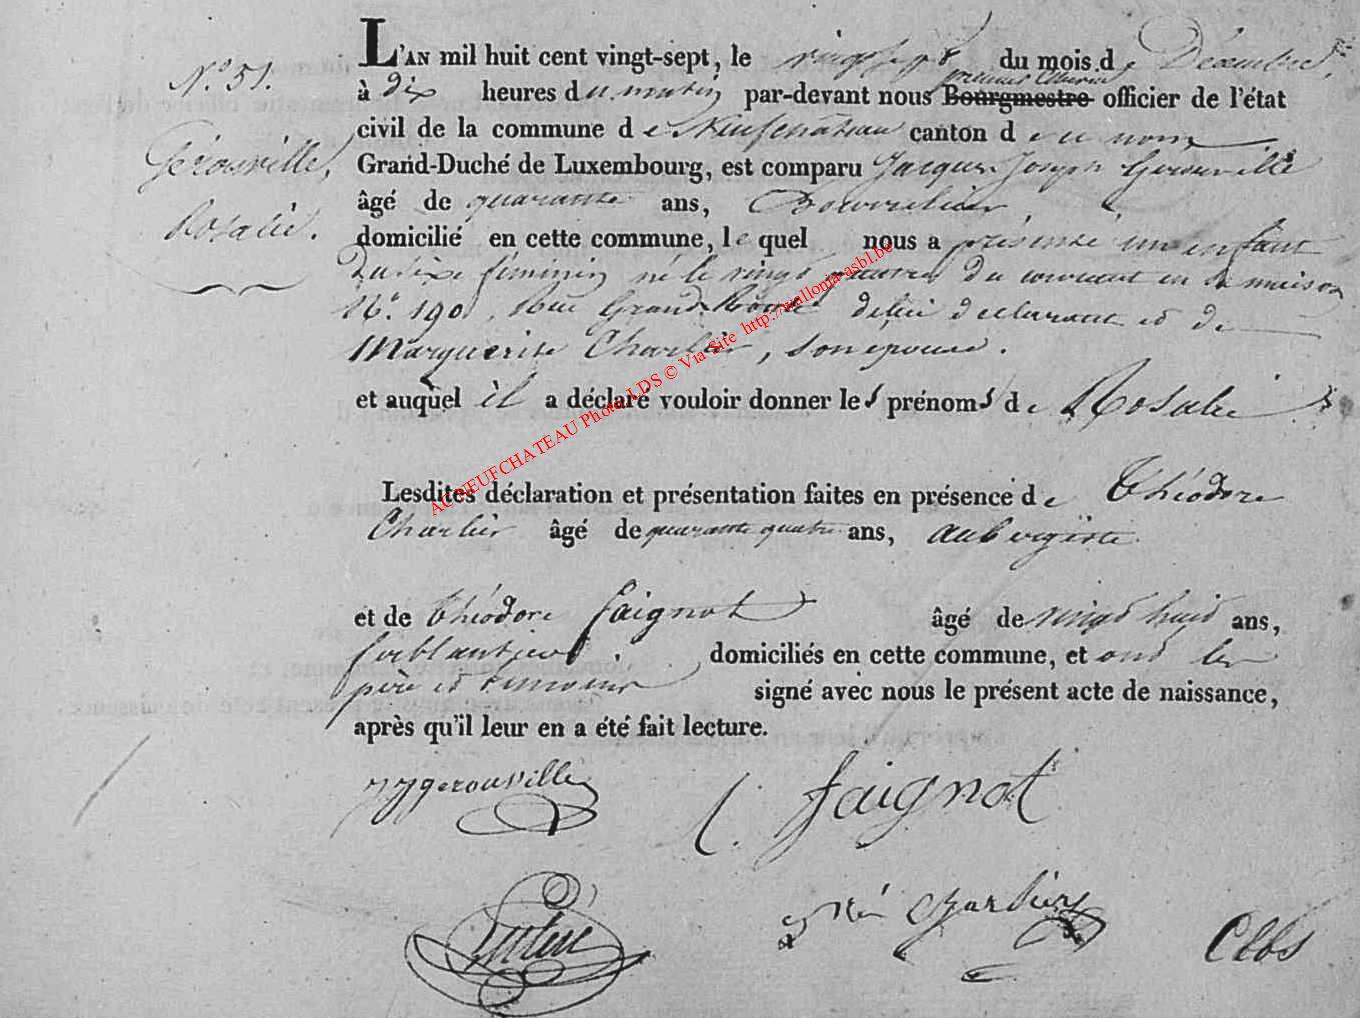 N.º 51.
Gérouville,
Rosalie.
L'AN mil huit cent vingt-sept, le vingt sept du mois de Décembre,
à dix heures du matin par-devant nous premier Echevin Bourgmestre officier de l'état
civil de la commune de Neufchâteau canton du nom
Grand-Duché de Luxembourg, est comparu Jacques Joseph Gerouville
âgé de quarante ans, Bourrelier
domicilié en cette commune, lequel nous a présenté un enfant
du sexe féminin né le vingt quatre du courant en sa maison
N.º 190, rue Grand déclarant et de
Marguerite Charlier, son épouse.
et auquel il a déclaré vouloir donner les prénoms de Rosalie
Lesdites déclaration et présentation faites en présence de Théodore
Charlier âgé de quarante quatre ans, aubergiste
et de théodore faignot âgé de vingt huit ans,
ferblantier domiciliés en cette commune, et ont les
père et témoins signé avec nous le présent acte de naissance,
après qu'il leur en a été fait lecture.
JJgerouville
faignot
charlier
ACNEUFCHATEAU Photo LDS © Via Site http://wallonia-asbl.be